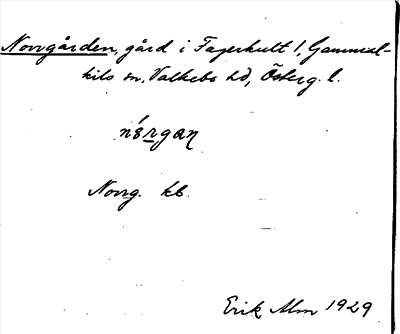 Norrgården, gård i Fagerhult 1, Gammal-
kils sn, Valkebo hd, Österg. l.
nó̀rgaɳ
Norrg. kb.
Erik Alm 1929